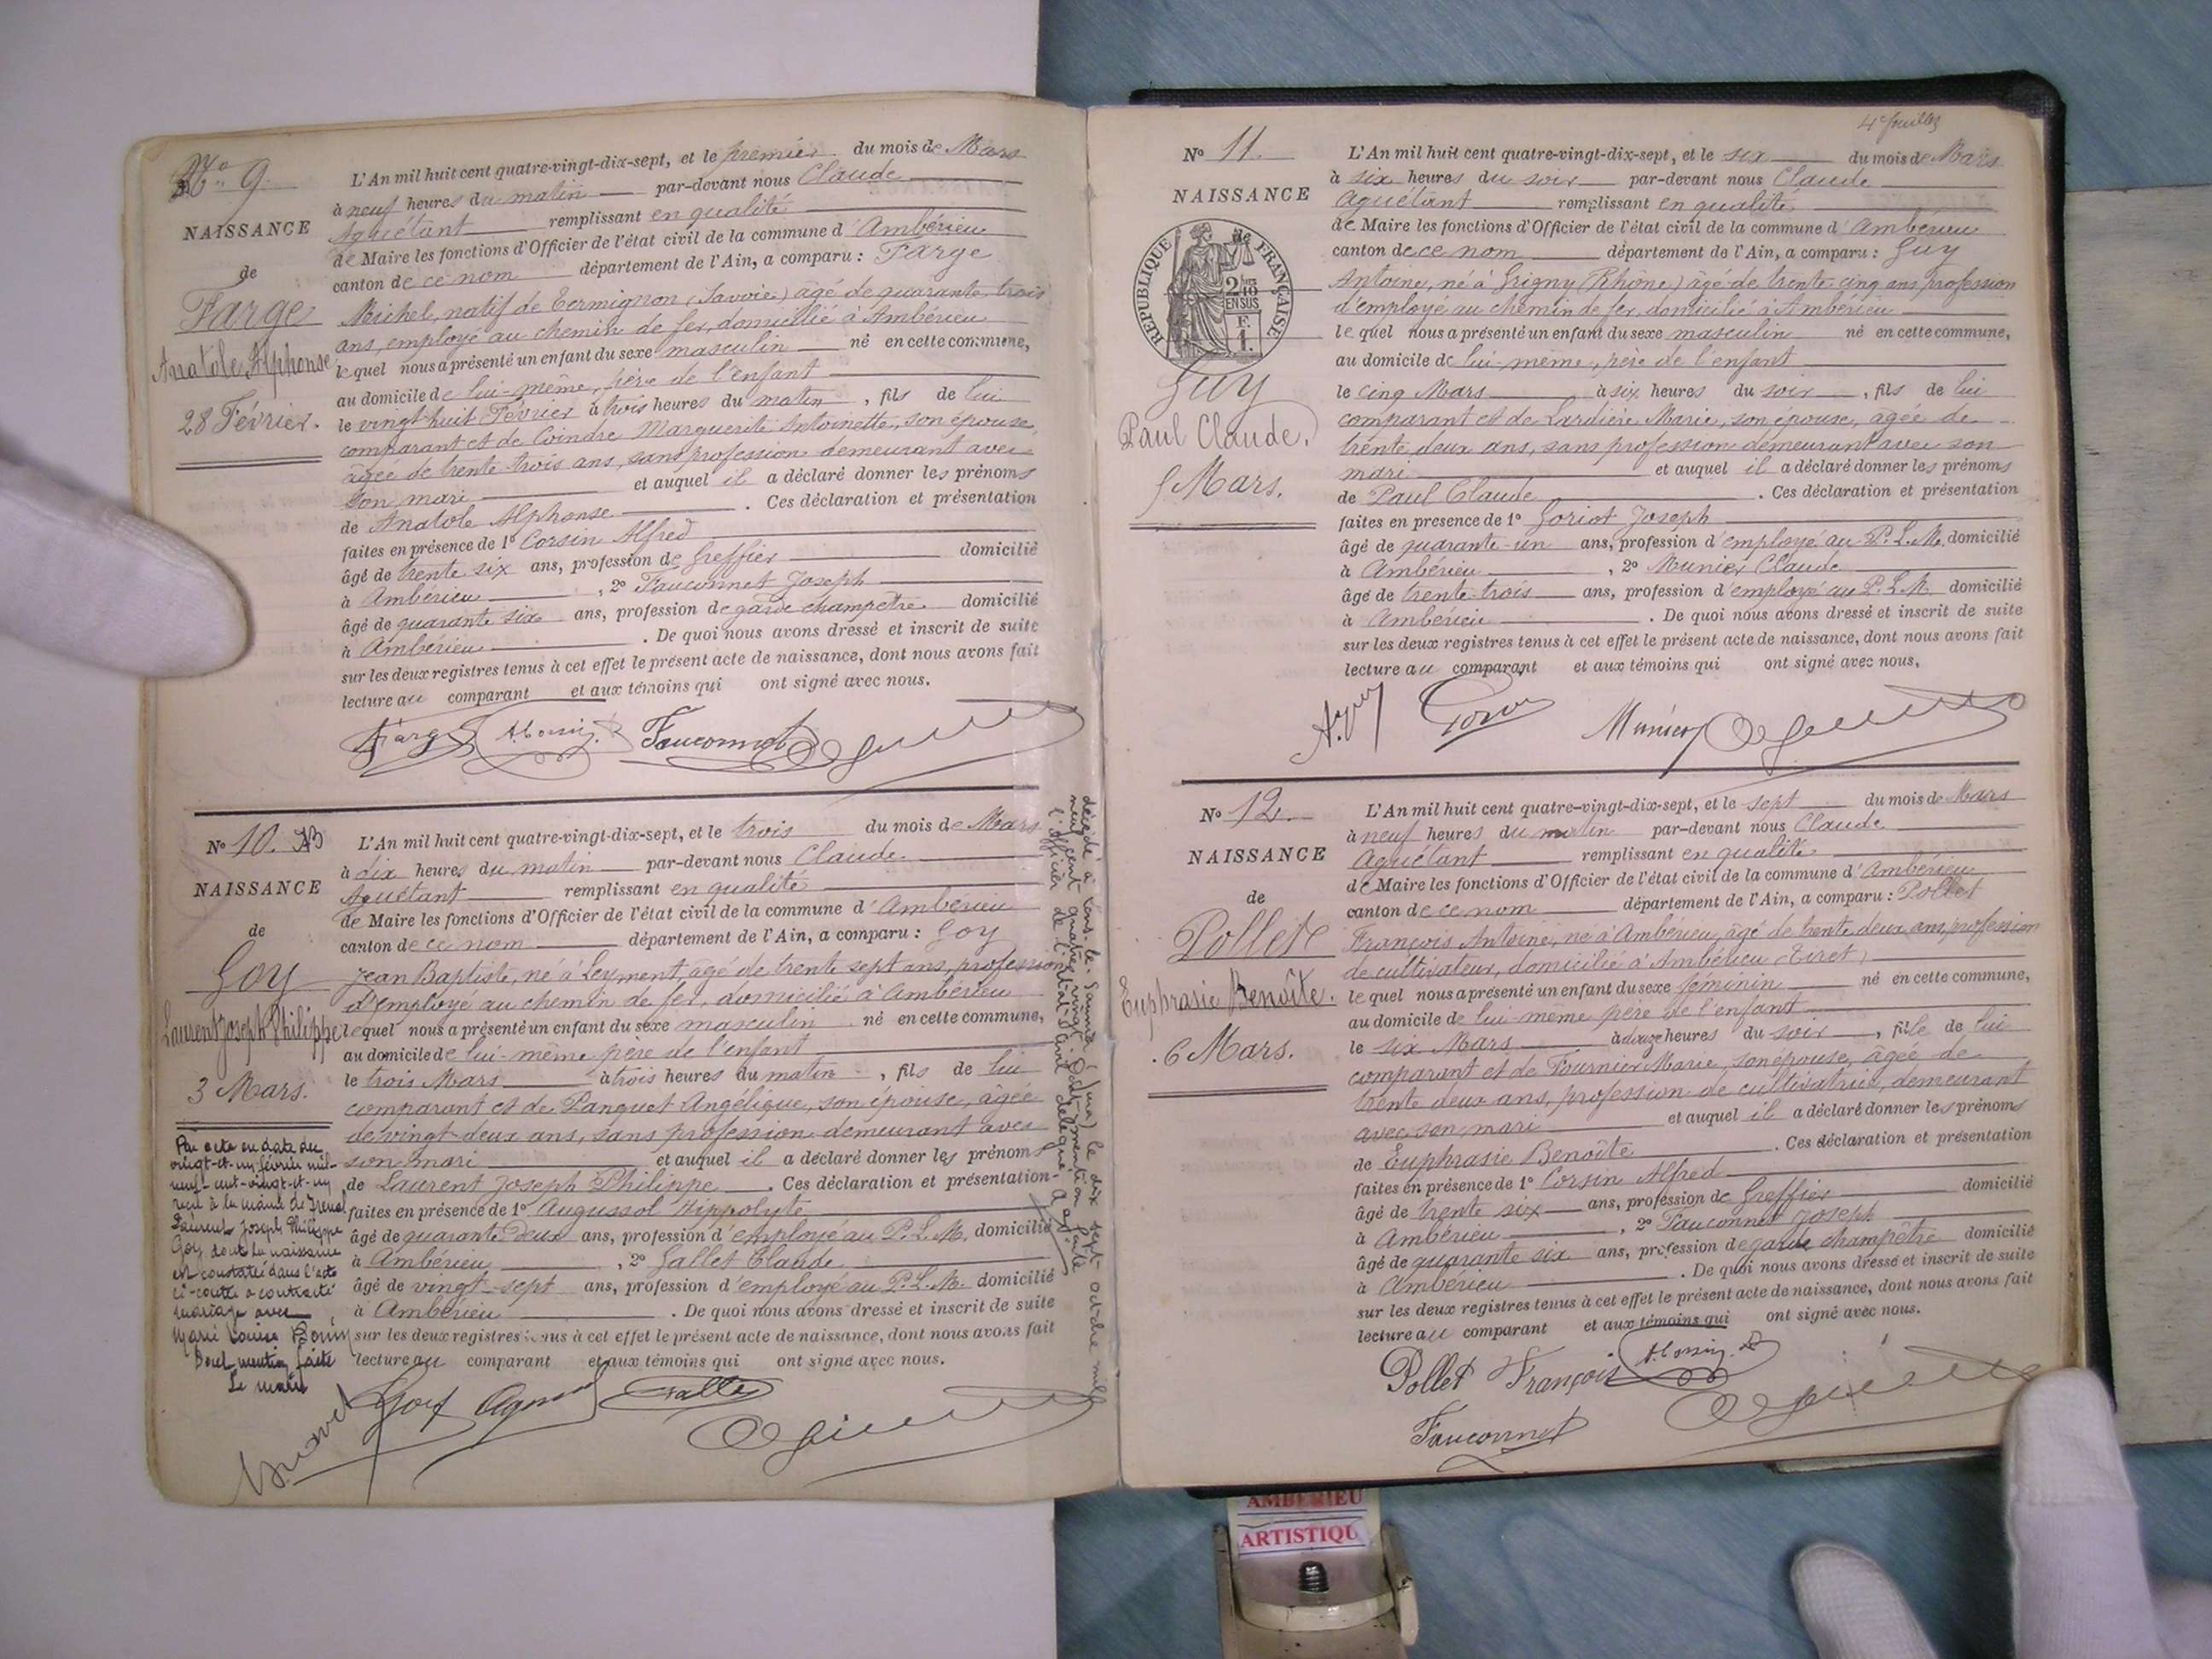 No 9.
NAISSANCE
de
Farge
Anatole Alphonse
28 Février.
L'An mil huit cent quatre-vingt-dix-sept, et le premier du mois de Mars
à neuf heures du matin par-devant nous Claude
Aguétant remplissant en qualité
de Maire les fonctions d'Officier de l'état civil de la commune d'Ambérieu
canton de ce nom département de l'Ain, a comparu : Farge
Michel, natif de Termignon (Savoie) âgé de quarante trois
ans, employé au chemin de fer, domicilié à Ambérieu
lequel nous a présenté un enfant du sexe masculin né en cette commune,
au domicile de lui-même, père de l'enfant
le vingt huit Février à trois heures du matin, fils de lui
comparant et de Coindre Marguerite Antoinette, son épouse,
âgée de trente trois ans, sans profession demeurant avec
son mari et auquel il a déclaré donner les prénoms
de Anatole Alphonse. Ces déclaration et présentation
faites en présence de 1° Corsin Alfred
âgé de trente six ans, profession de Greffier domicilié
à Ambérieu, 2° Fauconnet Joseph
âgé de quarante six ans, profession de garde champêtre domicilié
à Ambérieu. De quoi nous avons dressé et inscrit de suite
sur les deux registres tenus à cet effet le présent acte de naissance, dont nous avons fait
lecture au comparant et aux témoins qui ont signé avec nous.
Farge A. Corsin Fauconnet
No 10.
NAISSANCE
de
Goy
Laurent Joseph Philippe
3 Mars.
Par acte en date du
vingt-et-un février mil-
neuf-cent-vingt-et-un
reçu à la mairie de
Laurent Joseph Philippe
Goy dont la naissance
est constatée dans l'acte
ci-contre a contracté
mariage avec
Marie Louise
mention faite
Le maire
L'An mil huit cent quatre-vingt-dix-sept, et le trois du mois de Mars
à dix heures du matin par-devant nous Claude
Aguétant remplissant en qualité
de Maire les fonctions d'Officier de l'état civil de la commune d'Ambérieu
canton de ce nom département de l'Ain, a comparu : Goy
Jean Baptiste, né à Leyment, âgé de trente sept ans, profession
d'employé au chemin de fer, domicilié à Ambérieu
lequel nous a présenté un enfant du sexe masculin né en cette commune,
au domicile de lui-même père de l'enfant
le trois Mars à trois heures du matin, fils de lui
comparant et de Panquet Angélique, son épouse, âgée
de vingt-deux ans, sans profession demeurant avec
son mari et auquel il a déclaré donner les prénoms
de Laurent Joseph Philippe. Ces déclaration et présentation
faites en présence de 1° Augussol Hippolyte
âgé de quarante deux ans, profession d'employé au P.L.M. domicilié
à Ambérieu, 2° Gallet Claude
âgé de vingt-sept ans, profession d'employé au P.L.M. domicilié
à Ambérieu. De quoi nous avons dressé et inscrit de suite
sur les deux registres tenus à cet effet le présent acte de naissance, dont nous avons fait
lecture au comparant et aux témoins qui ont signé avec nous.
Goy
décédé à Lons-le-Saunier (Jura) le dix sept octobre mil
neuf cent quatre vingt. Dont mention faite
l'officier de l'état civil délégué
4e feuillet
No 11.
NAISSANCE
de
REPUBLIQUE FRANÇAISE
2/10 EN SUS
F.
1.
Guy
Paul Claude.
5 Mars.
L'An mil huit cent quatre-vingt-dix-sept, et le six du mois de Mars
à six heures du soir par-devant nous Claude
Aguétant remplissant en qualité
de Maire les fonctions d'Officier de l'état civil de la commune d'Ambérieu
canton de ce nom département de l'Ain, a comparu : Guy
Antoine, né à Grigny (Rhône) âgé de trente-cinq ans, profession
d'employé au chemin de fer, domicilié à Ambérieu
lequel nous a présenté un enfant du sexe masculin né en cette commune,
au domicile de lui-même, père de l'enfant
le cinq Mars à six heures du soir, fils de lui
comparant et de Lardière Marie, son épouse, âgée de
trente deux ans, sans profession demeurant avec son
mari et auquel il a déclaré donner les prénoms
de Paul Claude. Ces déclaration et présentation
faites en présence de 1° Goriot Joseph
âgé de quarante-un ans, profession d'employé au P.L.M. domicilié
à Ambérieu, 2° Munier Claude
âgé de trente-trois ans, profession d'employé au P.L.M. domicilié
à Ambérieu. De quoi nous avons dressé et inscrit de suite
sur les deux registres tenus à cet effet le présent acte de naissance, dont nous avons fait
lecture au comparant et aux témoins qui ont signé avec nous.
A. Guy Munier
No 12.
NAISSANCE
de
Pollet
Euphrasie Benoîte.
6 Mars.
L'An mil huit cent quatre-vingt-dix-sept, et le sept du mois de Mars
à neuf heures du matin par-devant nous Claude
Aguétant remplissant en qualité
de Maire les fonctions d'Officier de l'état civil de la commune d'Ambérieu
canton de ce nom département de l'Ain, a comparu : Pollet
François Antoine, né à Ambérieu, âgé de trente deux ans, profession
de cultivateur, domicilié à Ambérieu (Tiret)
lequel nous a présenté un enfant du sexe féminin né en cette commune,
au domicile de lui-même père de l'enfant
le six Mars à douze heures du soir, fille de lui
comparant et de Fournier Marie, son épouse, âgée de
trente deux ans, profession de cultivatrice, demeurant
avec son mari et auquel il a déclaré donner les prénoms
de Euphrasie Benoîte. Ces déclaration et présentation
faites en présence de 1° Corsin Alfred
âgé de trente six ans, profession de Greffier domicilié
à Ambérieu, 2° Fauconnet Joseph
âgé de quarante six ans, profession de garde champêtre domicilié
à Ambérieu. De quoi nous avons dressé et inscrit de suite
sur les deux registres tenus à cet effet le présent acte de naissance, dont nous avons fait
lecture au comparant et aux témoins qui ont signé avec nous.
Pollet François A. Corsin
Fauconnet
AMBERIEU
ARTISTIQU